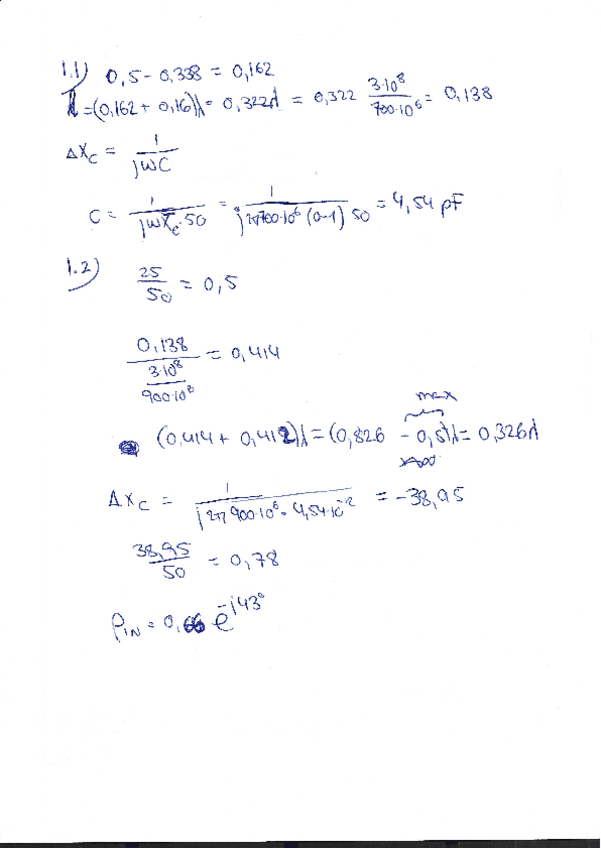 1.1) 0,5 - 0,338 = 0,162
l = (0,162 + 0,16)λ = 0,322λ = 0,322 3·10^8 / 700·10^6 = 0,138
ΔX_C = 1 / jωC
C = 1 / jωX_C·50 = 1 / j2π700·10^6 (0-1) 50 = 4,54 pF
1.2) 25 / 50 = 0,5
0,138 / (3·10^8 / 900·10^8) = 0,414
max
(0,414 + 0,412)λ = (0,826 - 0,5)λ = 0,326λ
ΔX_C = 1 / j2π900·10^6·4,54·10^-12 = -38,95
38,95 / 50 = 0,78
ρ_IN = 0,66 e^-j43°